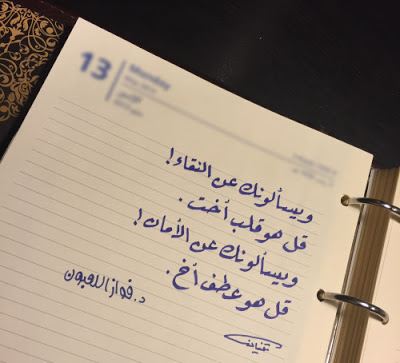 13
Monday
ويسألونك عن النقاء!
قل هو قلب أخت.
ويسألونك عن الأمان!
قل هو عطف أخ.
د. فواز اللعبون